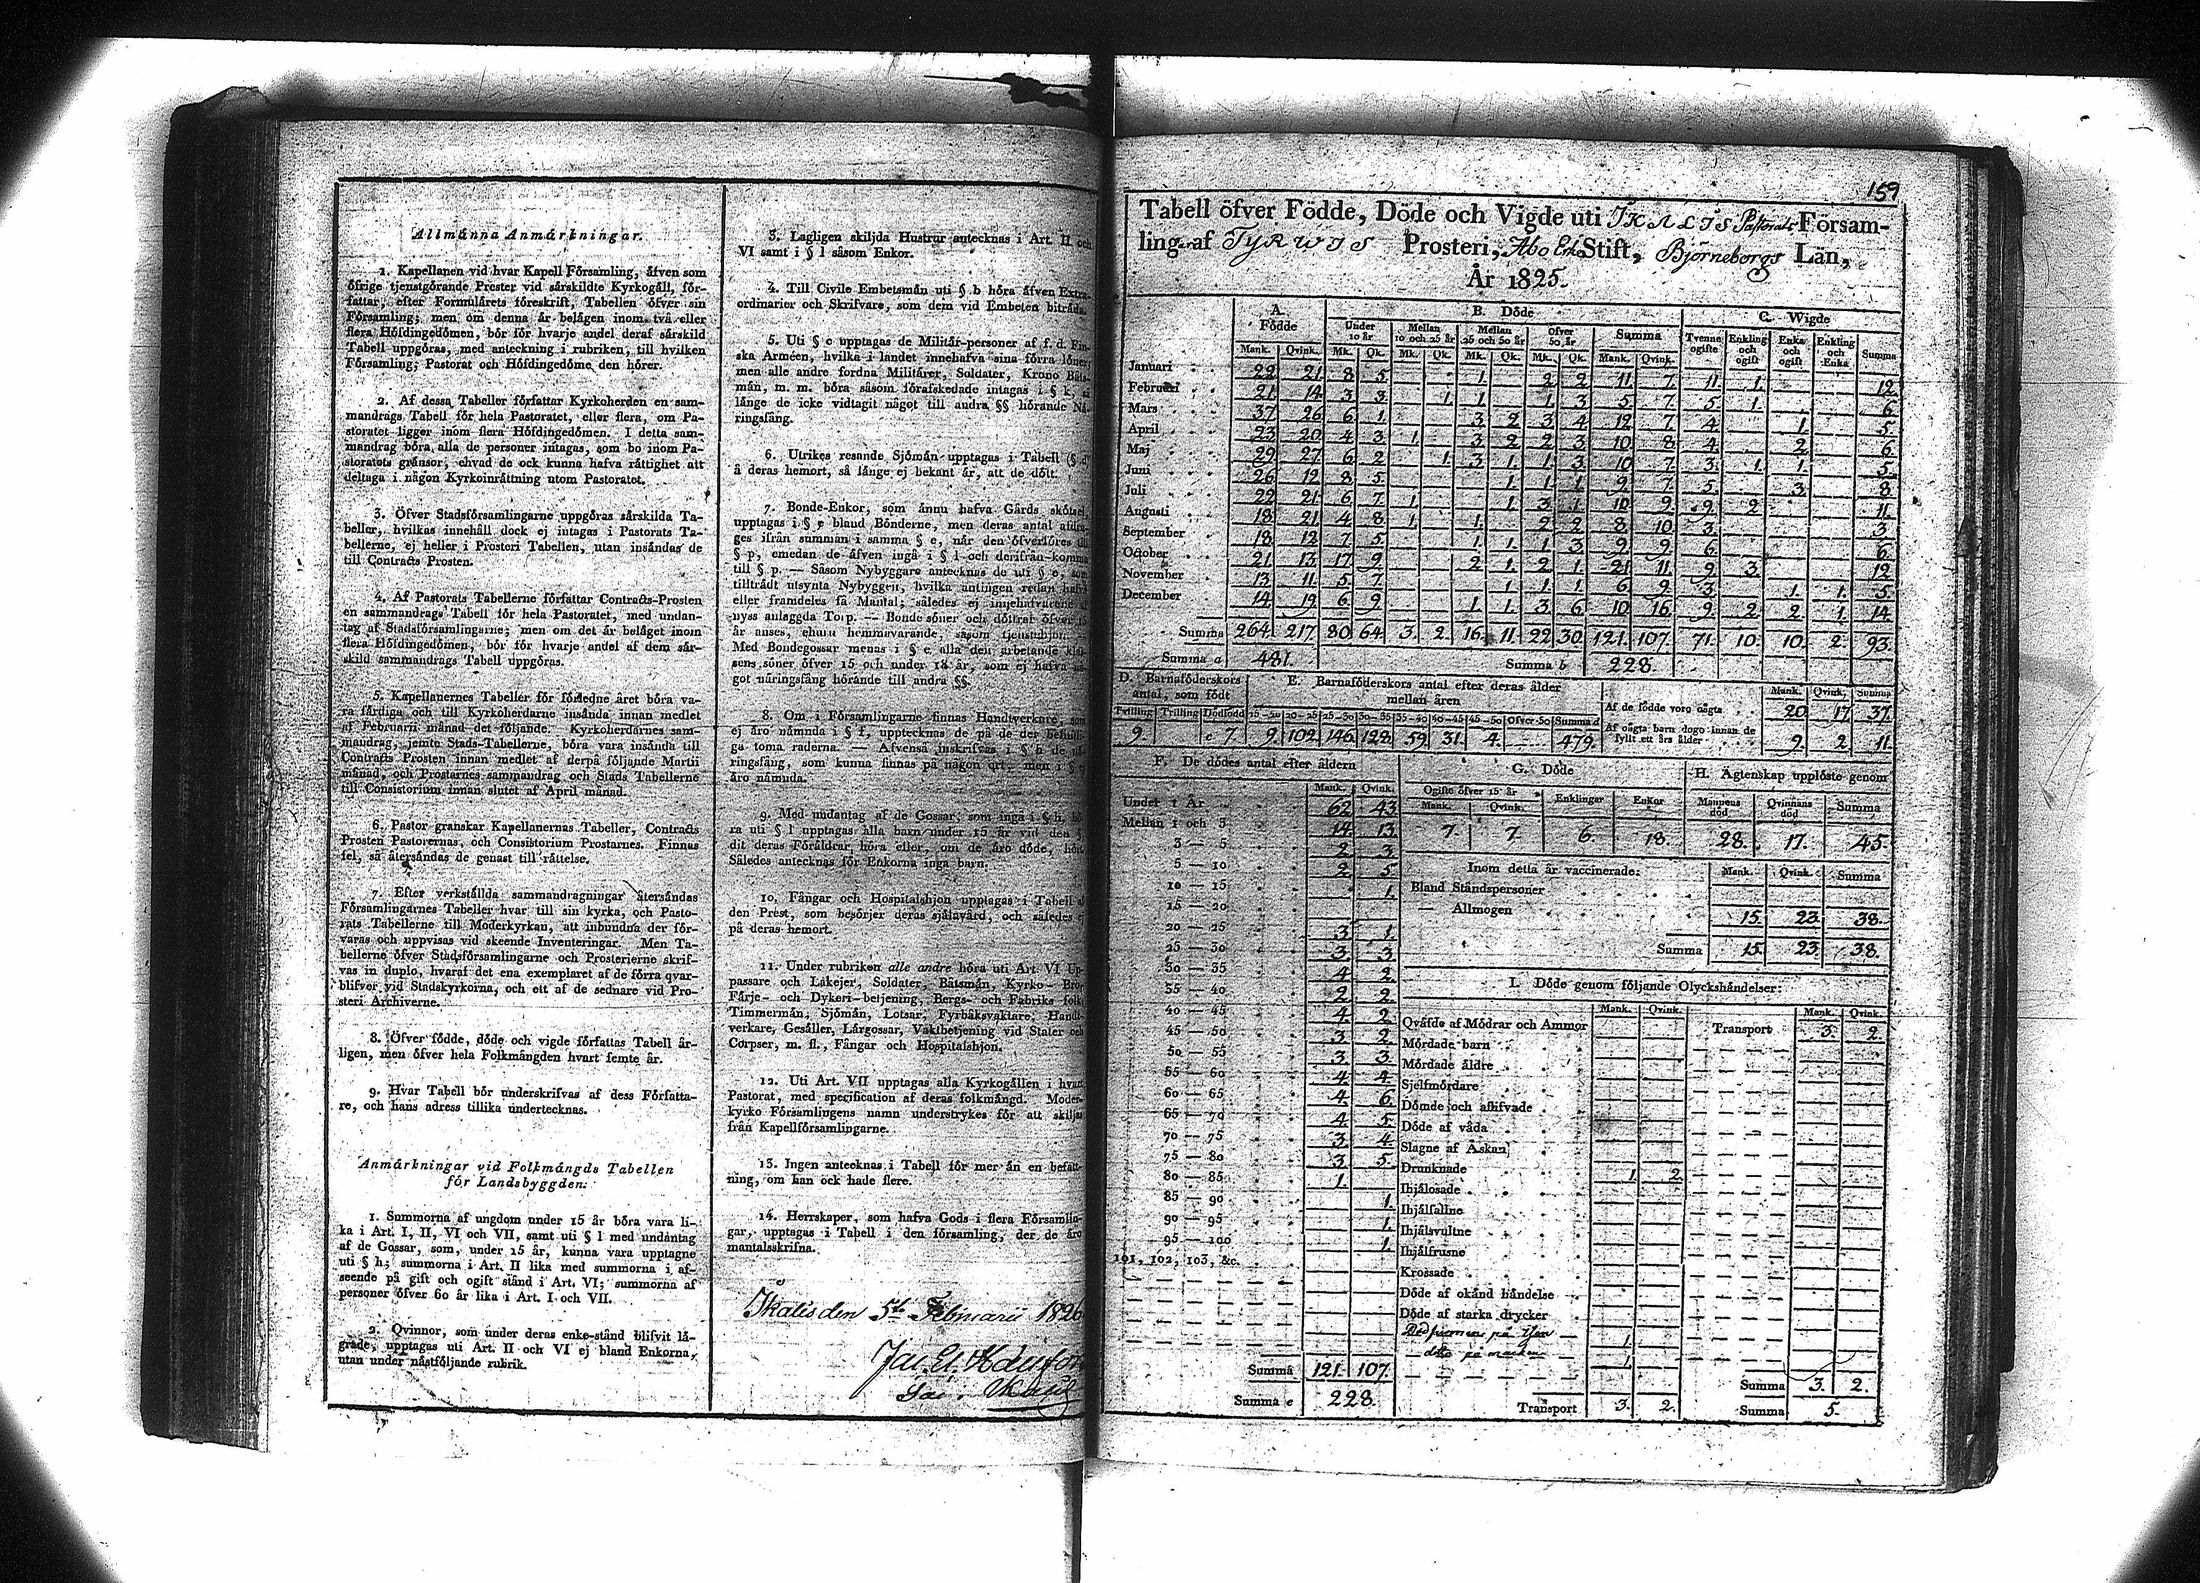 Allmänna Anmärkningar.
1. Kapellanen vid hvar Kapell Församling, äfven som
öfrige tjenstgörande Prester vid särskildte Kyrkogäll, för-
fattar, efter Formulärets föreskrift, Tabellen öfver sin
Församling; men om denna är belägen inom två eller
flera Höfdingedömen, bör för hvarje andel deraf särskild
Tabell uppgöras, med anteckning i rubriken, till hvilken
Församling, Pastorat och Höfdingedöme den hörer.
2. Af dessa Tabeller författar Kyrkoherden en sam-
mandrags Tabell för hela Pastoratet, eller flera, om Pa-
storatet ligger inom flera Höfdingedömen. I detta sam-
mandrag böra alla de personer intagas, som bo inom Pa-
storatets gränsor, ehvad de ock kunna hafva rättighet att
deltaga i någon Kyrkoinrättning utom Pastoratet.
3. Öfver Stadsförsamlingarne uppgöras särskilda Ta-
beller, hvilkas innehåll dock ej intagas i Pastorats Ta-
bellerne, ej heller i Prosteri Tabellen, utan insändas de
till Contracts Prosten.
4. Af Pastorats Tabellerne författar Contracts-Prosten
en sammandrags Tabell för hela Pastoratet, med undan-
tag af Stadsförsamlingarne; men om det är beläget inom
flera Höfdingedömen, bör för hvarje andel af dem sär-
skild sammandrags Tabell uppgöras.
5. Kapellanernes Tabeller för förledne året böra va-
ra färdiga och till Kyrkoherdarne insända innan medlet
af Februarii månad det följande. Kyrkoherdarnes sam-
mandrag, jemte Stads-Tabellerne, böra vara insända till
Contracts Prosten innan medlet af derpå följande Martii
månad, och Prostarnes sammandrag och Stads Tabellerne
till Consistorium innan slutet af April månad.
6. Pastor granskar Kapellanernas Tabeller, Contracts
Prosten Pastorernas, och Consistorium Prostarnes. Finnas
fel, så återsändas de genast till rättelse.
7. Efter verkställda sammandragningar återsändas
Församlingarnes Tabeller hvar till sin kyrka, och Pasto-
rats Tabellerne till Moderkyrkan, att inbundna der för-
varas och uppvisas vid skeende Inventeringar. Men Ta-
bellerne öfver Stadsförsamlingarne och Prosterierne skrif-
vas in duplo, hvaraf det ena exemplaret af de förra qvar-
blifver vid Stadskyrkorna, och ett af de sednare vid Pro-
steri Archiverne.
8. Öfver födde, döde och vigde författas Tabell år-
ligen, men öfver hela Folkmängden hvart femte år.
9. Hvar Tabell bör underskrifvas af dess Författa-
re, och hans adress tillika undertecknas.
Anmärkningar vid Folkmängds Tabellen
för Landsbyggden.
1. Summorna af ungdom under 15 år böra vara li-
ka i Art. I, II, VI och VII, samt uti § l med undantag
af de Gossar, som, under 15 år, kunna vara upptagne
uti § h; summorna i Art. II lika med summorna i af-
seende på gift och ogift stånd i Art. VI; summorna af
personer öfver 60 år lika i Art. I och VII.
2. Qvinnor, som under deras enke-stånd blifvit lä-
grade, upptagas uti Art. II och VI ej bland Enkorna,
utan under nästföljande rubrik.
3. Lagligen skiljda Hustrur antecknas i Art. II och
VI samt i § l såsom Enkor.
4. Till Civile Embetsmän uti § b höra äfven Extra-
ordinarier och Skrifvare, som dem vid Embeten biträda.
5. Uti § c upptagas de Militär-personer af f. d. Fin-
ska Arméen, hvilka i landet innehafva sina förra löner;
men alle andre fordna Militärer, Soldater, Krono Båts-
män, m. m. böra såsom förafskedade intagas i § k, så
länge de icke vidtagit något till andra §§ hörande Nä-
ringsfång.
6. Utrikes resande Sjömän upptagas i Tabell (§ d)
å deras hemort, så länge ej bekant är, att de dött.
7. Bonde-Enkor, som ännu hafva Gårds skötsel
upptagas i § e bland Bönderne, men deras antal afdra-
ges ifrån summan i samma § e, når den öfverföres till
§ p, emedan de äfven ingå i § l och derifrån komma
till § p. — Såsom Nybyggare antecknas de uti § e, som
tillträdt utsynta Nybyggen, hvilka antingen redan hafva
eller framdeles få Mantal; således ej innehafvarene af
nyss anlaggda Torp. — Bonde söner och döttrar öfver 15
år anses, ehuru hemmavarande, såsom tjenstehjon. —
Med Bondegossar menas i § e alla den arbetande klas-
sens söner öfver 15 och under 18 år, som ej hafva nå-
got näringsfång hörande till andra §§.
8. Om i Församlingarne finnas Handtverkare, som
ej äro nämnda i § f, upptecknas de på de der befintli-
ga toma raderna. — Äfvenså inskrifvas i § h de nä-
ringsfång, som kunna finnas på någon ort, men i §
äro nämuda.
9. Med undantag af de Gossar, som ingå i § h, bö-
ra uti § l upptagas alla barn under 15 år vid den §,
dit deras Föräldrar höra eller, om de äro döde, hört.
Således antecknas för Enkorna inga barn.
10. Fångar och Hospitalshjon upptagas i Tabell af
den Prest, som besörjer deras själavård, och således ej
på deras hemort.
11. Under rubriken alle andre höra uti Art. VI Up-
passare och Lakejer, Soldater, Båtsmän, Kyrko- Bro-
Färje- och Dykeri-betjening, Bergs- och Fabriks folk,
Timmermän, Sjömän, Lotsar, Fyrbåksvaktare, Handt-
verkare, Gesäller, Lärgossar, Vaktbetjening vid Stater och
Corpser, m. fl., Fångar och Hospitalshjon.
12. Uti Art. VII upptagas alla Kyrkogällen i hvart
Pastorat, med specification af deras folkmängd. Moder-
kyrko Församlingens namn understrykes för att skiljas
från Kapellförsamlingarne.
13. Ingen antecknas i Tabell för mer än en befatt-
ning, om han ock hade flere.
14. Herrskaper, som hafva Gods i flera Församlin-
gar, upptagas i Tabell i den församling, der de äro
mantalsskrifna.
Ikalis den 5te Februarii 1826
159
Tabell öfver Födde, Döde och Vigde uti IKALIS Pastorats Församling
ling af TYRWIS Prosteri, Åbo Erke Stift, Björneborgs Län,
År 1825.
A. Födde B. Döde C. Wigde
Under 10 år Mellan 10 och 25 år Mellan 25 och 50 år Öfver 50 år Summa Tvenne ogifte Enkling och ogift Enka och ogift Enkling och Enka Summa
Mank. Qvink. Mk. Qk. Mk. Qk. Mk. Qk. Mk. Qk. Mank. Qvink.
Januari 22 21 8 5 1 2 2 11 7 11 1 12
Februari 21 14 3 3 1 1 1 3 5 7 5 1 6
Mars 37 26 6 1 3 2 3 4 12 7 4 1 5
April 23 20 4 3 1 3 2 2 3 10 8 4 2 6
Maj 29 27 6 2 1 3 1 1 3 10 7 3 1 1 5
Juni 26 12 8 5 1 1 1 9 7 5 3 8
Juli 22 21 6 7 1 1 3 1 10 9 9 2 11
Augusti 18 21 4 8 1 1 2 2 8 10 3 3
September 18 12 7 5 1 1 1 3 9 9 6 6
October 21 13 17 9 2 1 2 1 21 11 9 3 12
November 13 11 5 7 1 1 1 6 9 3 1 1 5
December 14 19 6 9 1 1 3 6 10 16 9 2 2 1 14
Summa 264 217 80 64 3 2 16 11 22 30 121 107 71 10 10 2 93
Summa a 481. Summa b 228.
D. Barnaföderskors antal, som födt
E. Barnaföderskors antal efter deras ålder mellan åren
Tvilling Trilling Dödfödd 15–20 20–25 25–30 30–35 35–40 40–45 45–50 Öfver 50 Summa d
9. c 7. 9. 102. 146. 128. 59. 31. 4. 479.
Mank. Qvink. Summa
Af de födde voro oägta 20 17 37.
Af oägta barn dogo innan de fyllt ett års ålder 9. 2 11.
F. De dödes antal efter åldern
Mank. Qvink.
Under 1 År 62 43
Mellan 1 och 3 14 13
3 — 5 2 3
5 — 10 2 5
10 — 15 1
15 — 20
20 — 25 3 1
25 — 30 3 3
30 — 35 4 2
35 — 40 2 2
40 — 45 4 2
45 — 50 3 2
50 — 55 3 3
55 — 60 4 4
60 — 65 4 6
65 — 70 4 5
70 — 75 3 4
75 — 80 3 5
80 — 85 1
85 — 90 1
90 — 95 1
95 — 100 1
101, 102, 103, &c.
Summa 121 107
Summa e 228.
G. Döde
Ogifte öfver 15 år Enklingar Enkor
Mank. Qvink.
7. 7. 6. 18.
H. Ägtenskap upplöste genom
Mannens död Qvinnans död Summa
28. 17. 45.
Inom detta år vaccinerade: Mank. Qvink. Summa
Bland Ståndspersoner
— Allmogen 15 23 38
Summa 15 23 38
I. Döde genom följande Olyckshändelser:
Mank. Qvink.
Qväfde af Mödrar och Ammor
Mördade barn
Mördade äldre
Sjelfmördare
Dömde och aflifvade
Döde af våda
Slagne af Åskan
Drunknade 1 2
Ihjälosade
Ihjälfallne
Ihjälsvultne
Ihjälfrusne
Krossade
Döde af okänd händelse
Döde af starka drycker
på isen 1
dito på marken 1
Transport 3. 2.
Mank. Qvink.
Transport 3. 2
Summa 3. 2.
Summa 5.